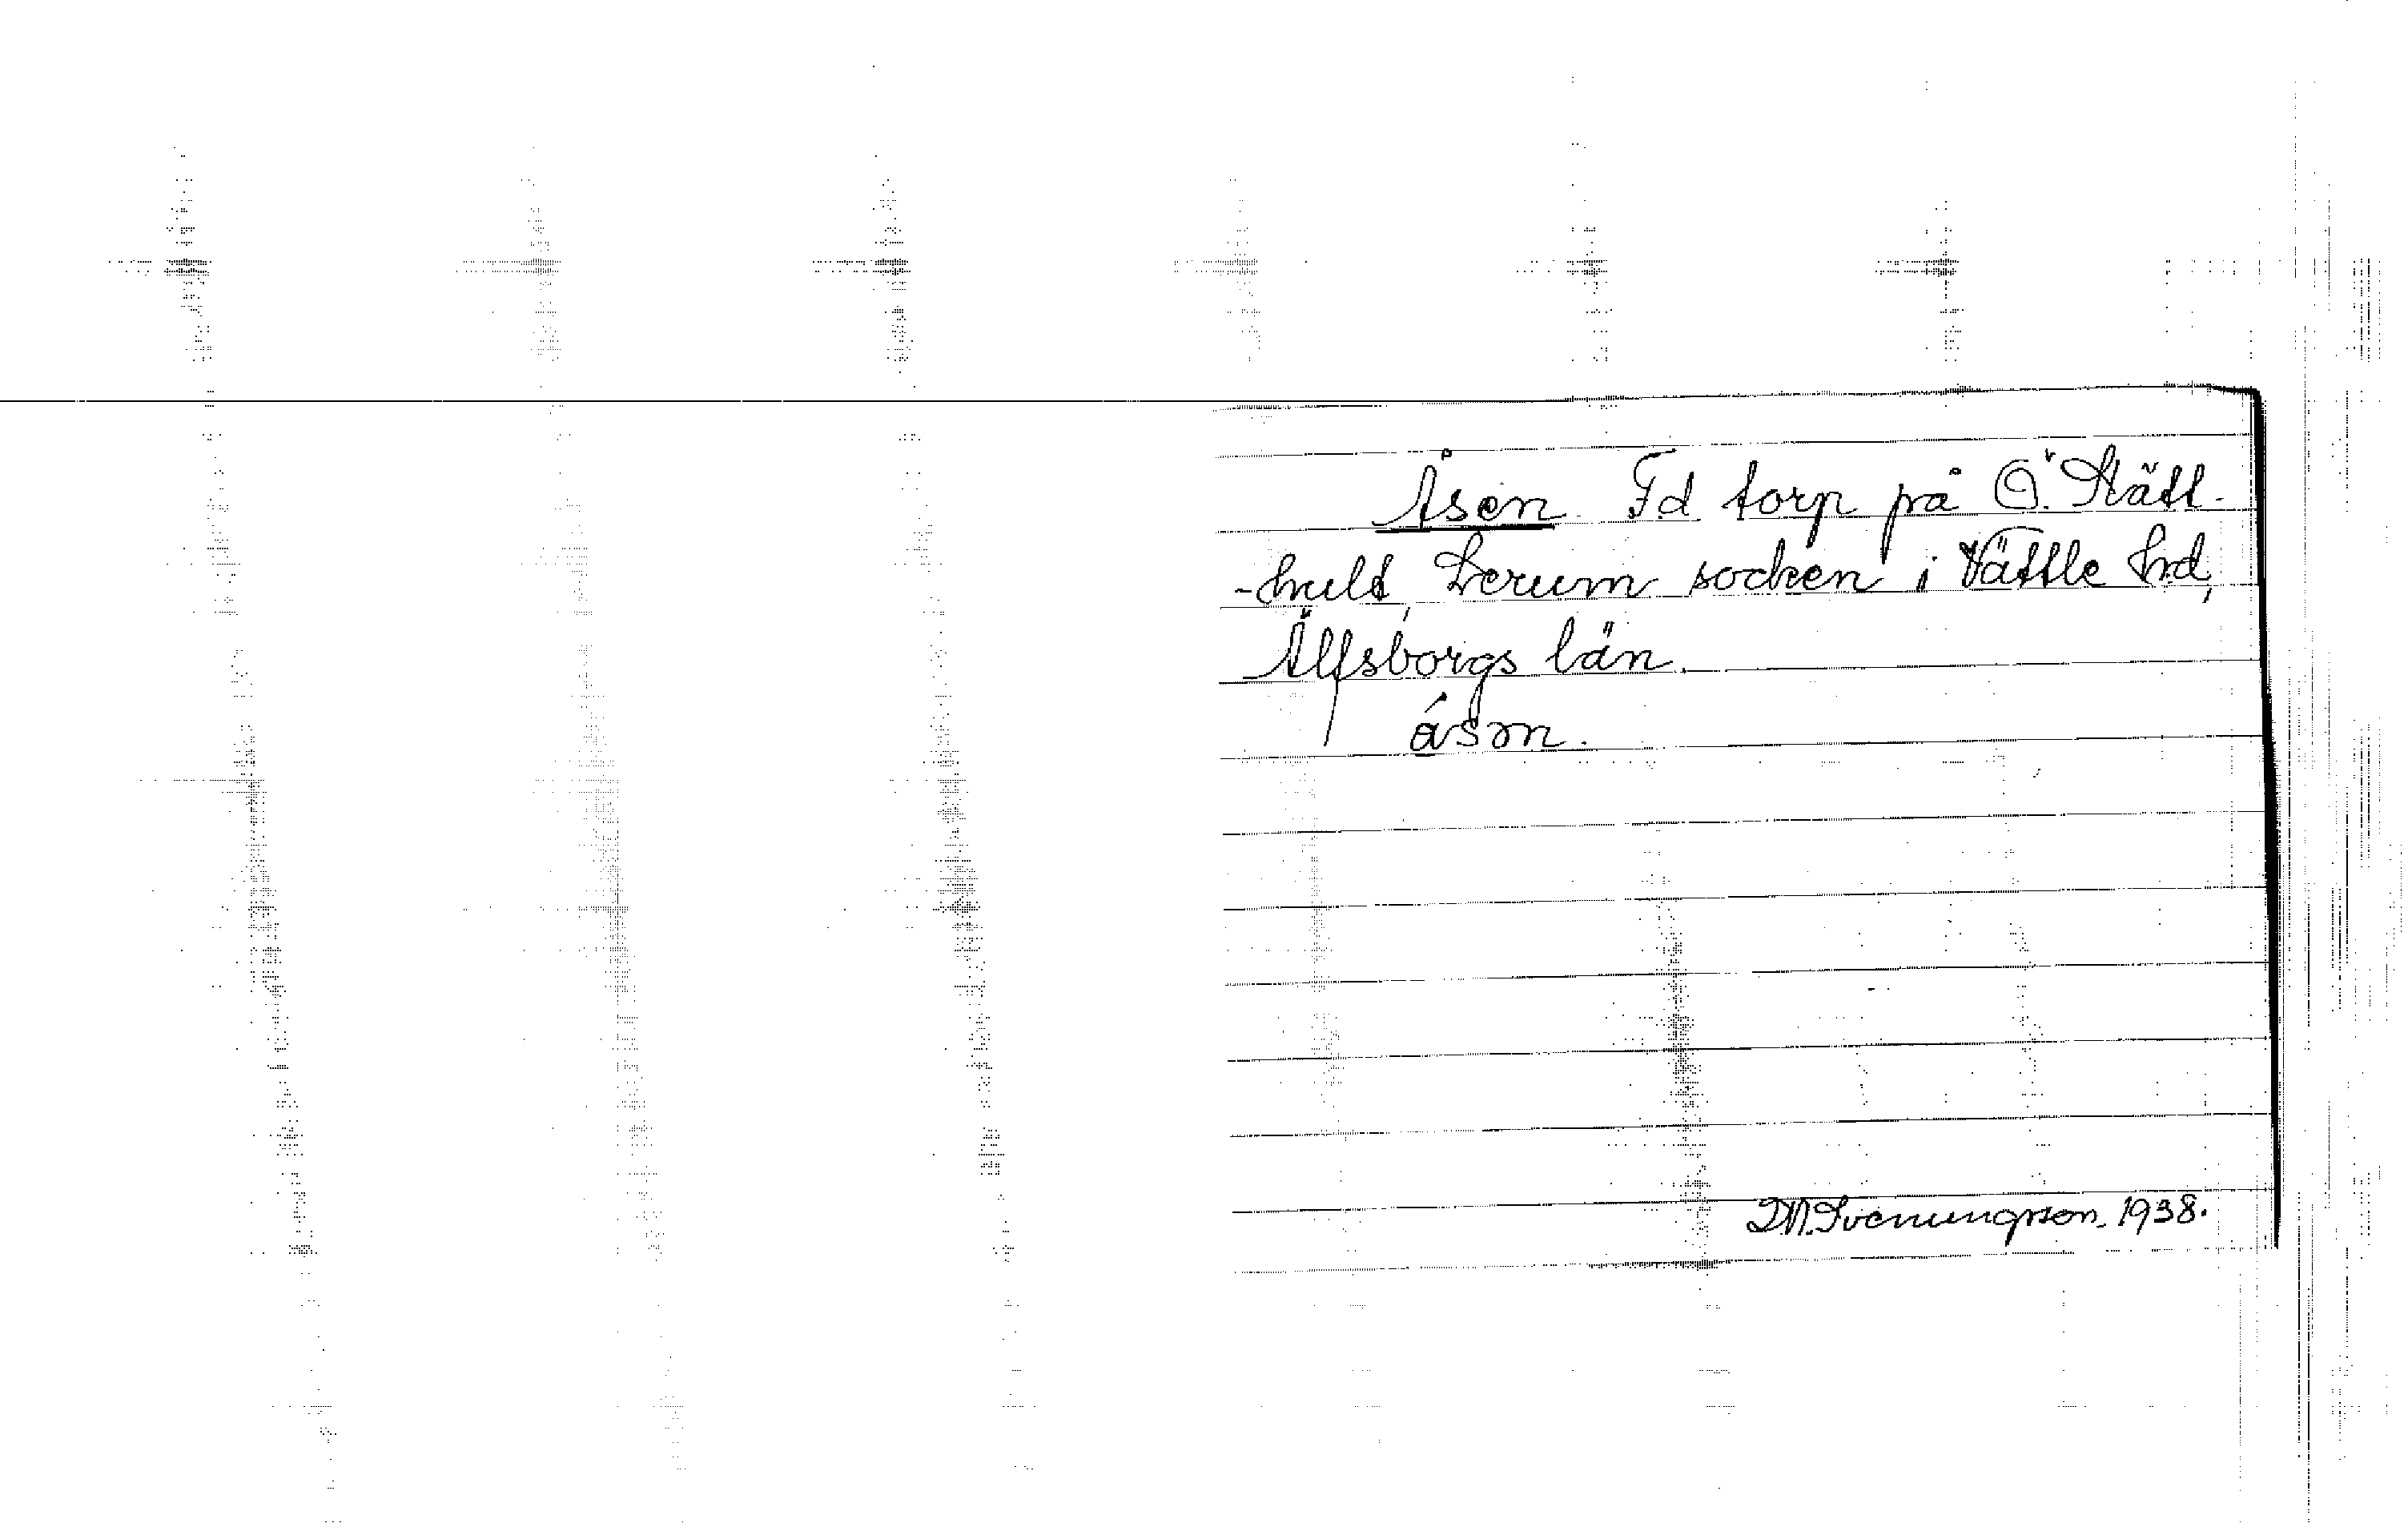 Åsen. Fd torp på Ö. Stätt-
-hult, Lerum socken i Vättle hd,
Älfsborgs län.
ásm.
D.N.Svenungsson. 1938.